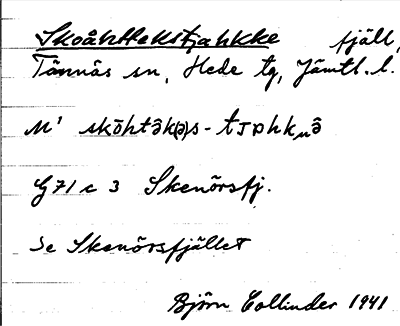 Skoåhttekstjahkke fjäll,
Tännäs sn, Hede tg, Jämtl. l.
M' skōhtə̂k(ə)s-tjɒhkₙə̂
G 71 c 3 Skenörsfj.
Se Skenörsfjället
Björn Collinder 1941